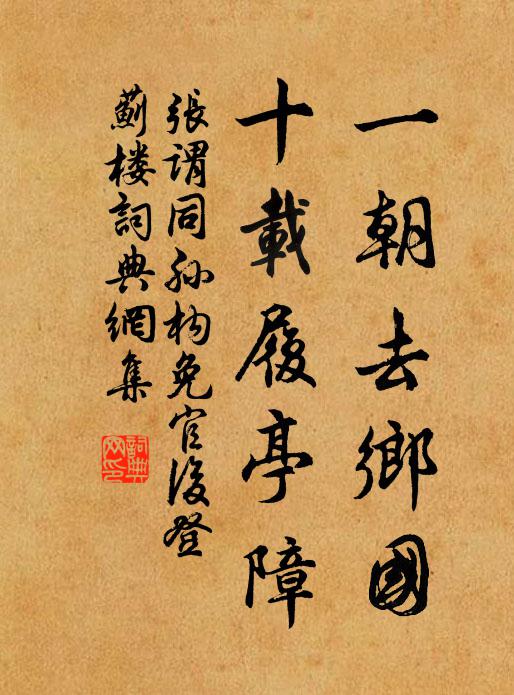 一朝去鄉國
十載履亭障
張謂同孫构免官後登
薊楼詞典網集
詞典
网印